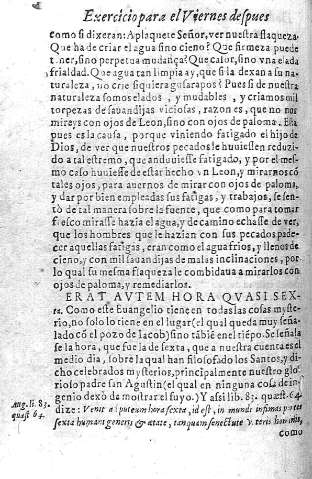 Exercicio para el Viernes despues
como si dixeran: Aplaquete Señor, ver nuestra flaqueza.
Que ha de criar el agua sino cieno? Que firmeza puede
tener, sino perpetua mudãça? Que calor, sino vna elada
frialdad. Que agua tan limpia ay, que si la dexan a su na-
turaleza, no crie siquiera gusarapos? Pues si de nuestra
naturaleza somos elados, y mudables, y criamos mil
torpezas de sauandijas viciosas, razon es, que no nos
mireys con ojos de Leon, sino con ojos de paloma. Esta
pues es la causa, porque viniendo fatigado el hijo de
Dios, de ver que nuestros pecados le huuiessen reduzi-
do a tal estremo, que anduuiesse fatigado, y por el mes-
mo caso huuiesse de estar hecho vn Leon, y mirarnos cõ
tales ojos, para auernos de mirar con ojos de paloma,
y dar por bien empleadas sus fatigas, y trabajos, se sen-
tò de tal manera sobre la fuente, que como para tomar
fresco mirasse hazia el agua, y de camino echasse de ver,
que los hombres que le hazian con sus pecados pade-
cer aquellas fatigas, eran como el agua frios, y llenos de
cieno, y con mil sauandijas de malas inclinaciones, por
lo qual su mesma flaqueza le combidaua a mirarlos con
ojos de paloma, y remediarlos.
ERAT AVTEM HORA QVASI SEX-
ta. Como este Euangelio tiene en todas las cosas myste-
rio, no solo lo tiene en el lugar (el qual queda muy seña-
lado cõ el pozo de Iacob) sino tãbiẽ en el tiẽpo. Señala
se la hora, que fue la de sexta, que a nuestra cuenta es el
medio dia, sobre la qual han filosofado los Santos, y di
cho celebrados mysterios, principalmente nuestro glo
rioso padre san Agustin (el qual en ninguna cosa de in-
genio dexò de mostrar el suyo.) Y assi lib. 83. quæst. 64
Aug. li. 83.
quæst 64.
dize: Venit ad puteum hora sexta, id est, in mundi infimas partes
sexta humani generis ætate, tanquam senectute veteris hominis,
como